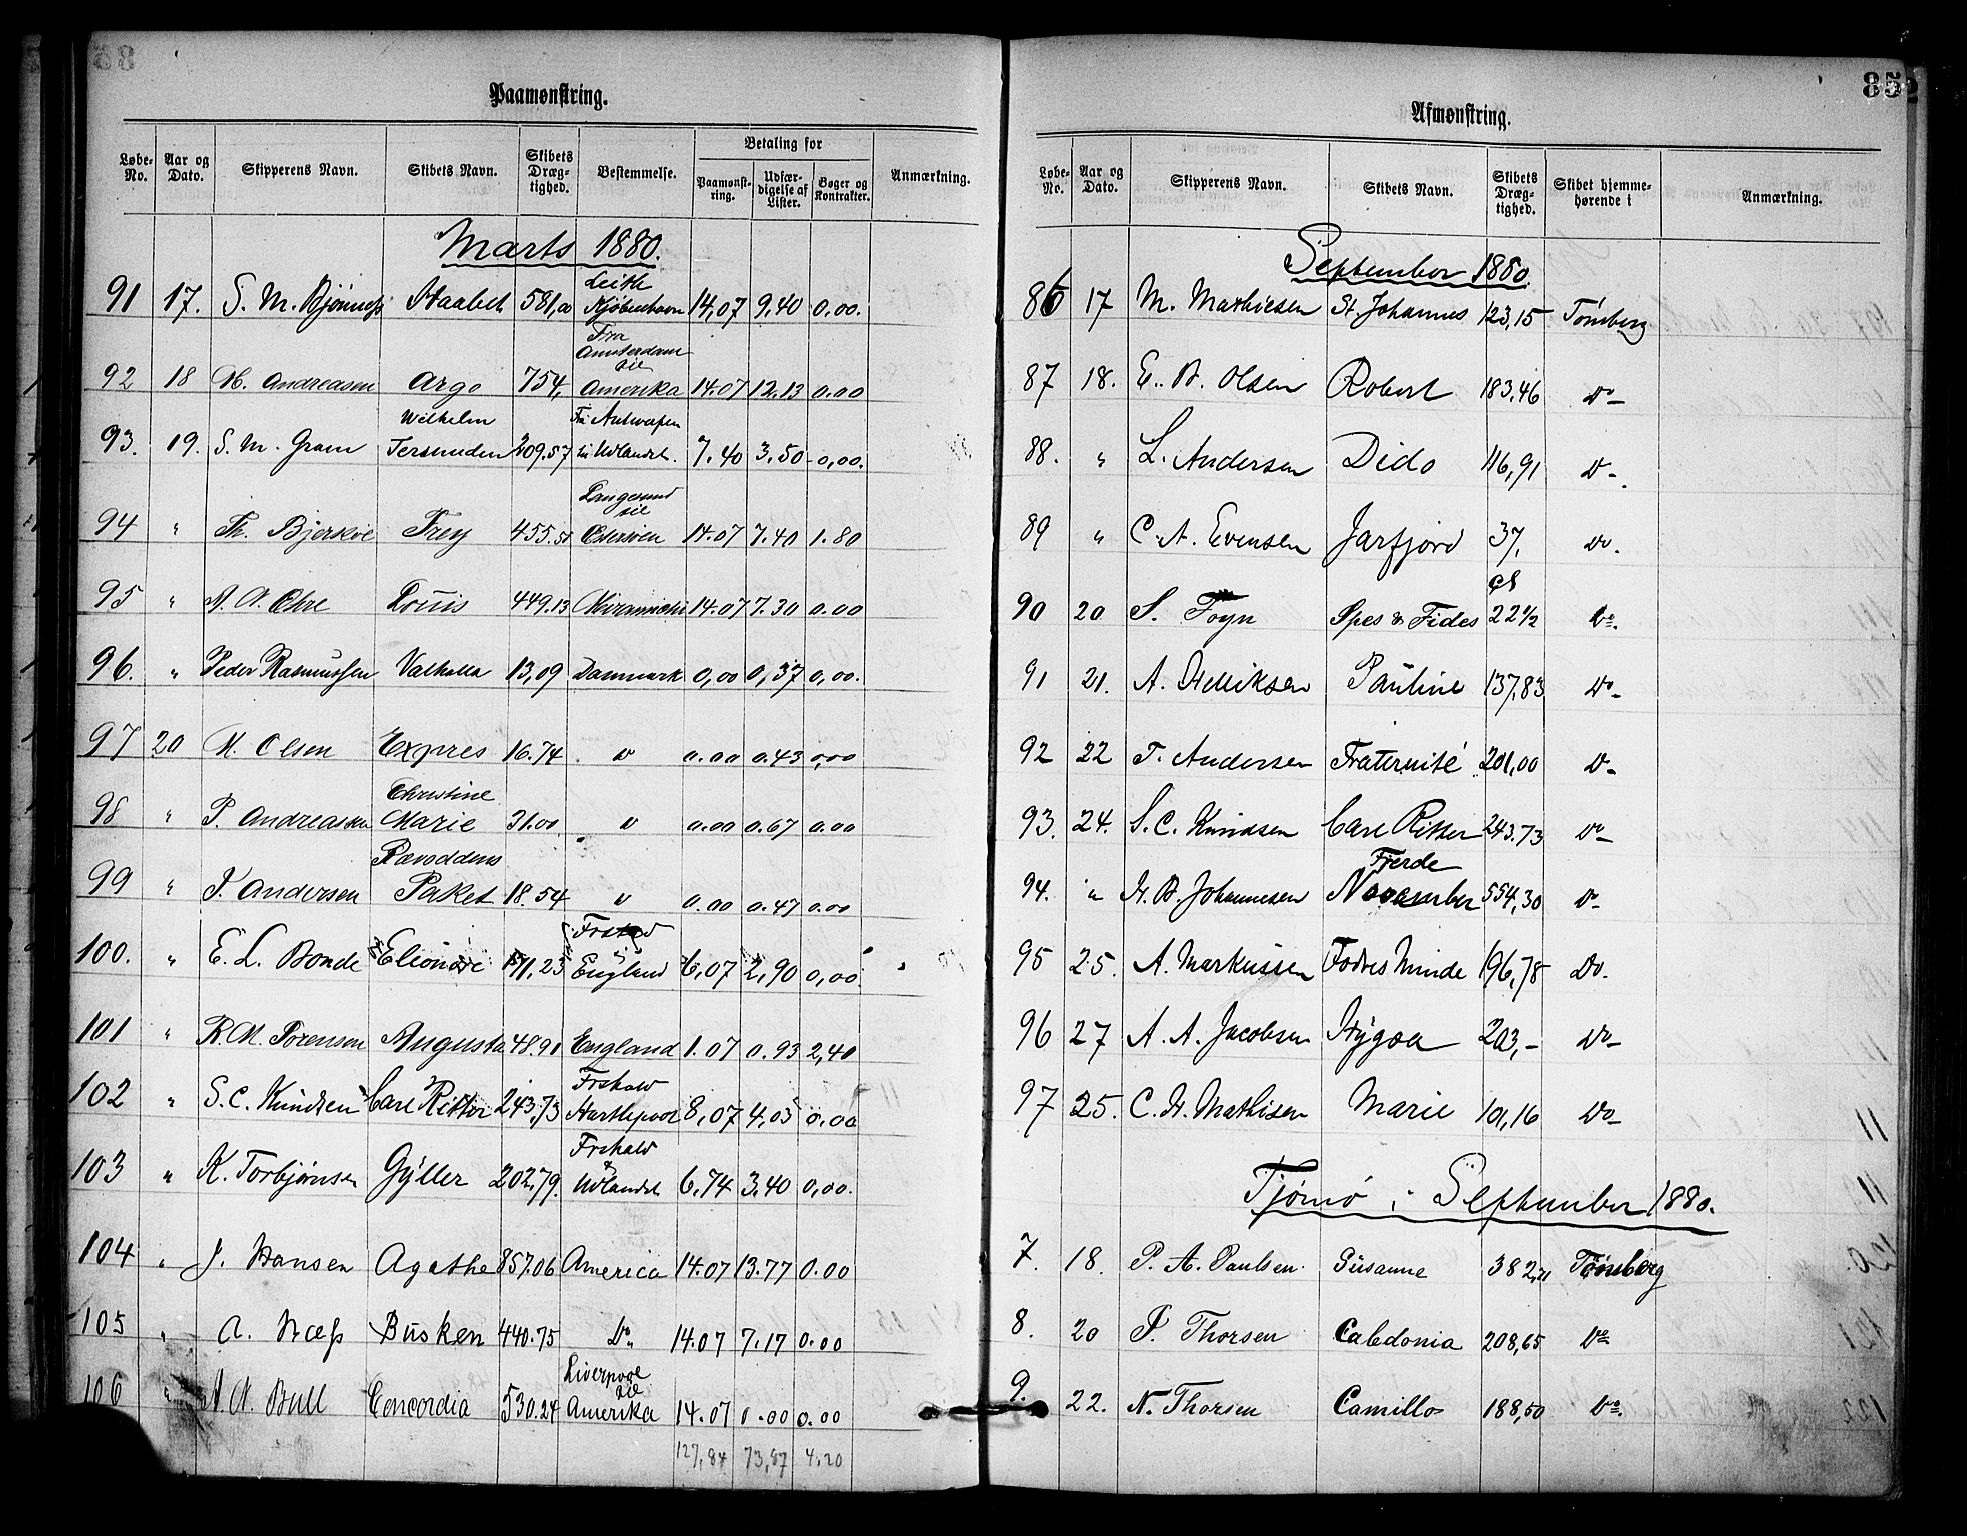 Paamønstring.
Løbe-No. Aar og Dato. Skipperens Navn. Skibets Navn. Skibets Dræg-tighed. Bestemmelse. Betaling for Anmærkning.
Paamønst-ring. Udfær-digelse af Lister. Bøger og Kontrakter.
Marts 1880.
Leith
91 17. S. M. Bjönness Haabet 581,00 Kjöbenhavn 14,07 9,40 0,00.
Fra
Amsterdam
til
92 18 H. Andreasen Argo 754, Amerika 14.07 12.13 0.00
Wilhelm Fra Antwerpen
93. 19. S. M. Gram Tersmeden 209.57 til Udlandet. 7.40 3.50 0,00.
Langesund
til
94 " Th. Bjerskoe Frey 455.51 14.07 7.40 1.80
95 " Louis 449.13 Miramichi 14.07 7.30 0.00
96. " Peder Rasmussen Valhalla 13,09 Danmark 0,00 0,37 0,00.
97 20 M. Olsen Expres 16.74 " 0.00 0.43 0,00
Christine
98 " P. Andreasen Marie 31.00 " 0.00 0.67 0.00
Rævoddens
99 " P. Andersen Paket 18.54 " 0.00 0.47 0.00
100. " E. L. Bonde Eleonore 171,23 England 6,07 2,90 0,00
101 " R. M. Sørensen Augusta 48.91 England 1.07 0.93 2,40
Frshald
102 " S. C. Knudsen Carl Ritter 243,73 Hartlepool 8,07 4,05 0,00
Frshald
103 " K. Torbjörnsen Gyller 202,79. Udlandet 6,74 3,40 0,00.
104 " J. Hansen Agathe 857.06 America 14.07 13.77 0.00
105 " A. Næss Busken 440.75 Do 14.07 7.17 0.00
Liverpool
til
106 " A. N. Bull Concordia 530.24 Amerika 14.07 0.00 0.00
127,84 73,87 4,20
85
Afmønstring.
Løbe-No. Aar og Dato. Skipperens Navn. Skibets Navn. Skibets Dræg-tighed. Skibet hjemme-hørende i Anmærkning.
September 1880.
86 17 M. Mathiesen St. Johannes 123,15 Tönsberg
87 18. E. B. Olsen Robert 183,46 Do
88. " L. Andersen Dido 116,91 Do
89 " C. A. Evensen Jarfjord 37, Do.
cl
90 20 S. Foyn Spes & Fides 22 1/2 Do.
91 21. A. Henriksen Pauline 137,83 Do
92 22 T. Andersen Fraternité 201,00 Do
93. 24. S. C. Knudsen Carl Ritter 243.73 Do
Fjerde
94. " H. B. Johannesen November 554,30 Do
95 25. A. Markussen Fædres Minde 196,78 Do.
96 27 A. A. Jacobsen Hygæa 203,- Do
97 25. C. H. Mathisen Marie 101,16 Do
Tjömö i September 1880.
7. 18. P. A. Paulsen Susanne 382,21 Tönsberg
8. 20 P. Thorsen Caledonia 208,65 Do
9. 22. N. Thorsen Camillo 188,50 Do.